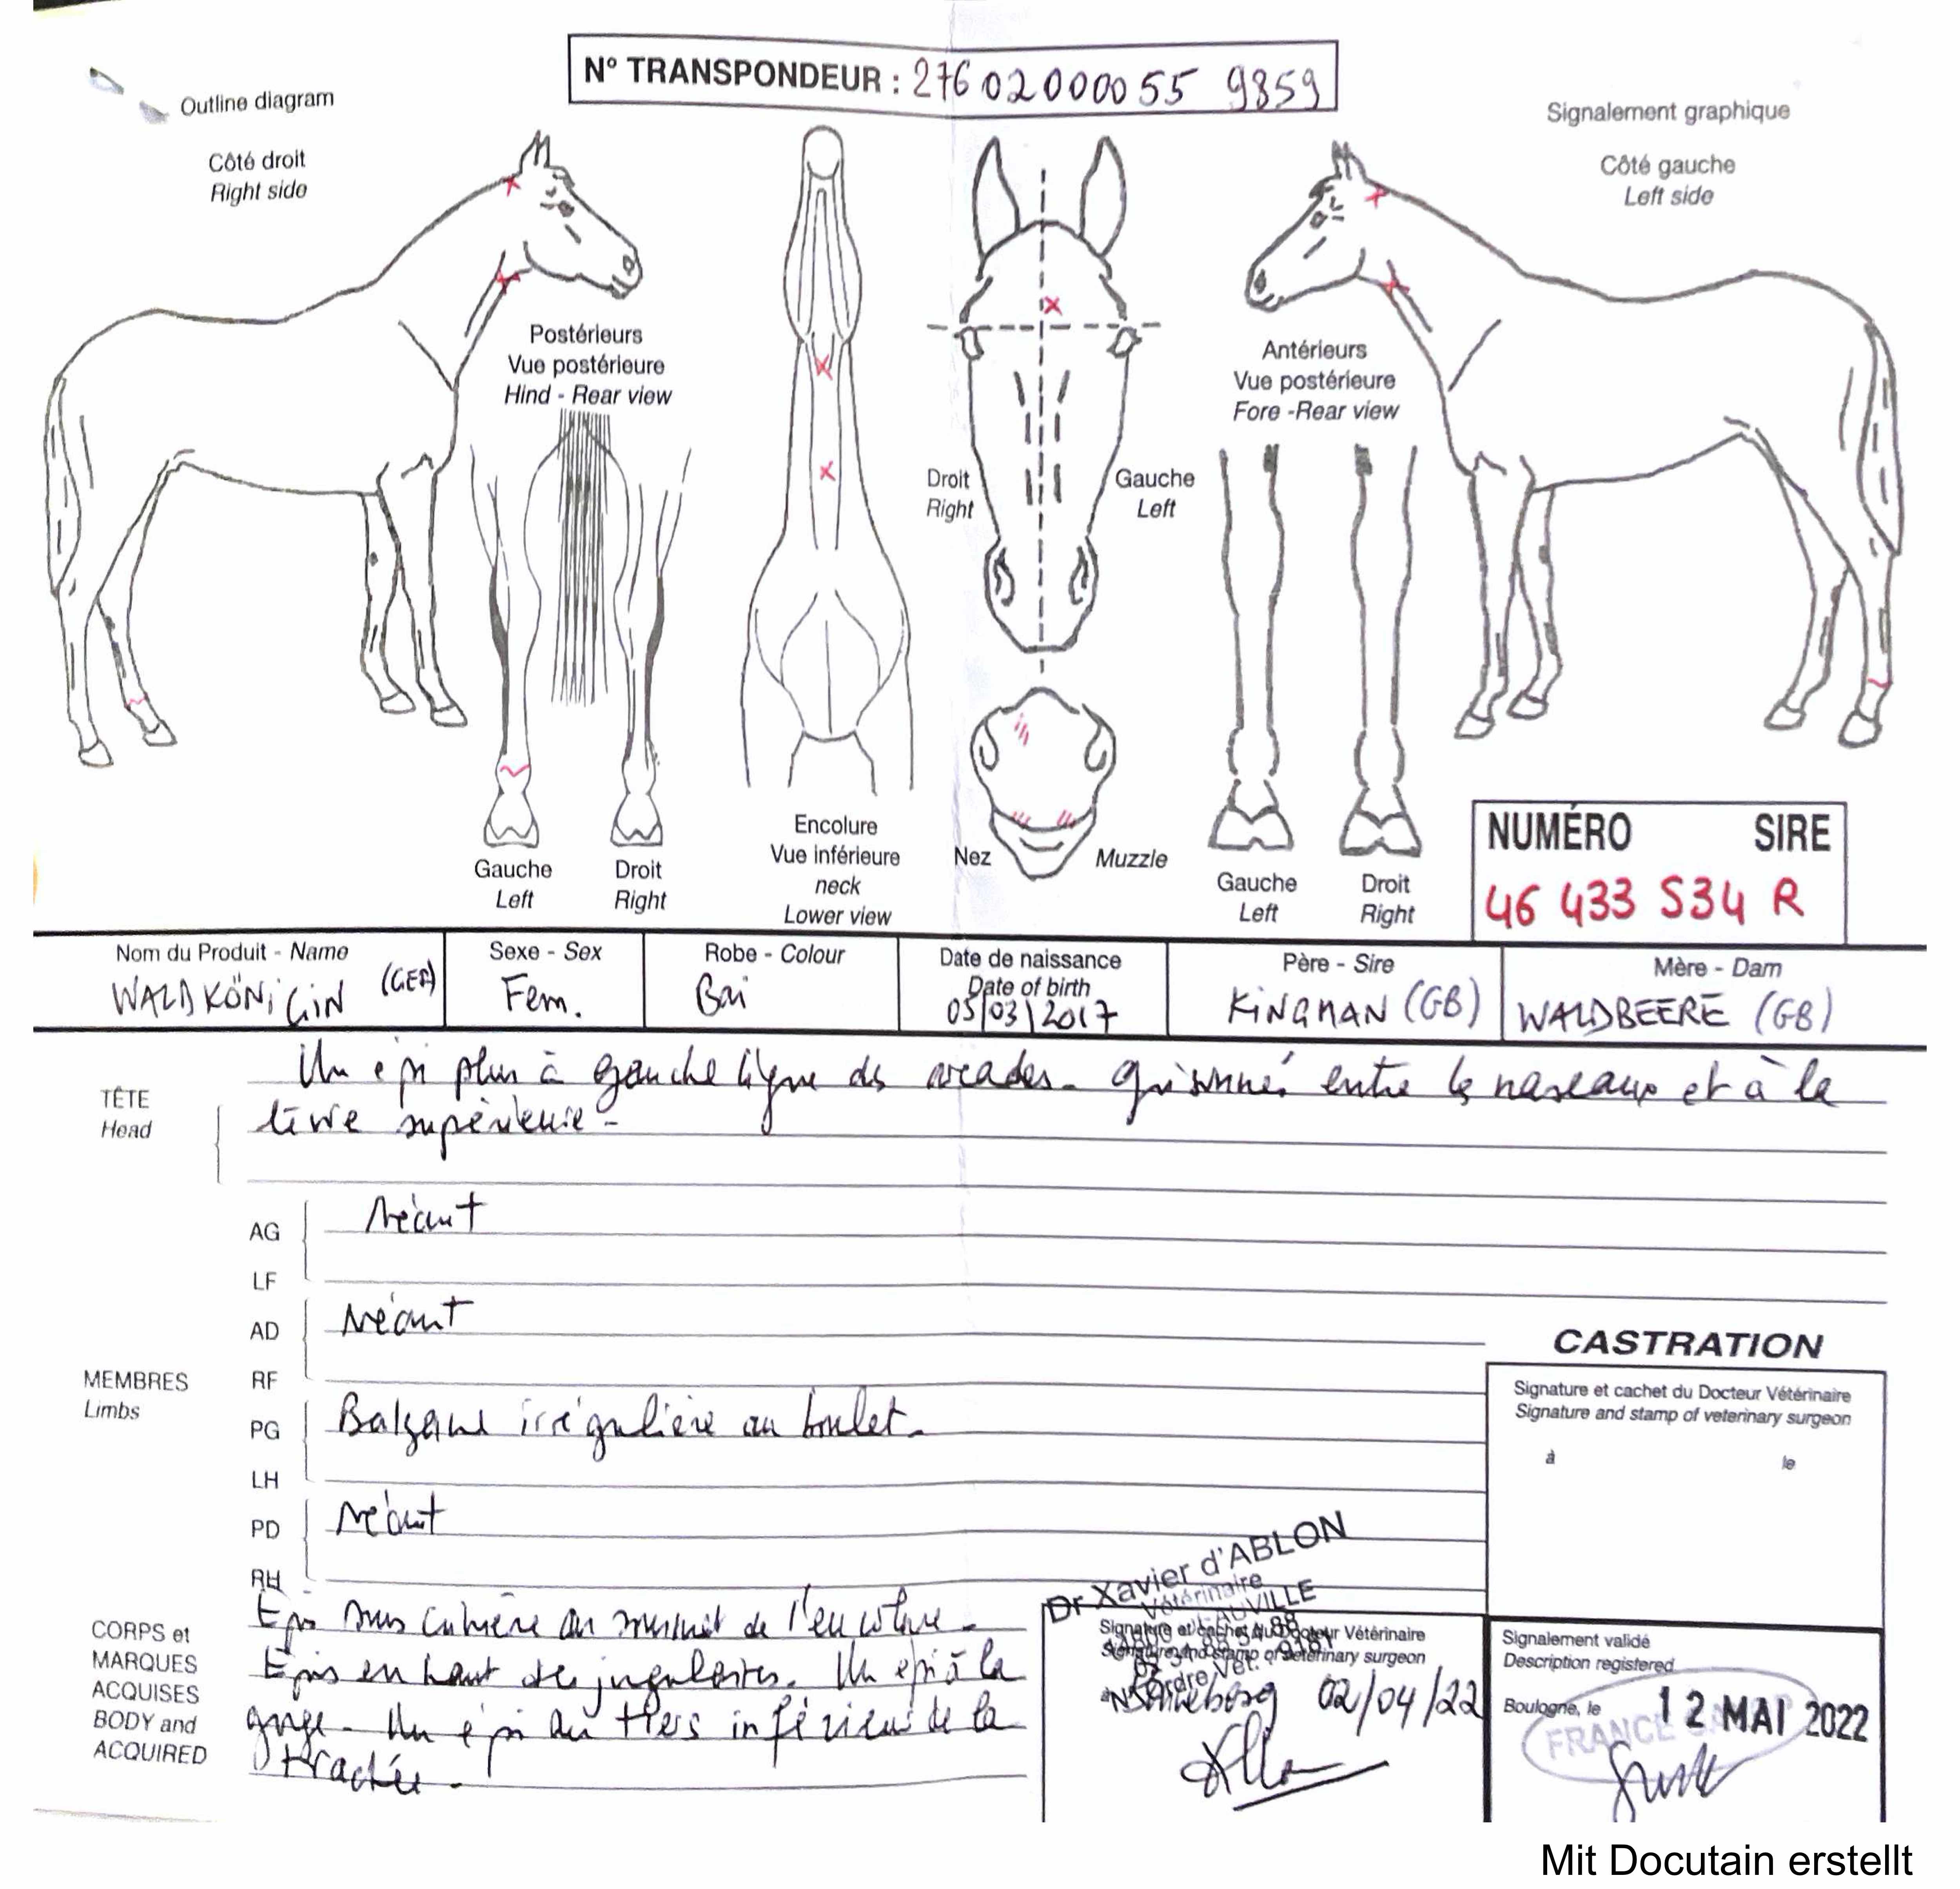 N° TRANSPONDEUR : 276 02 0000 55 9859
Outline diagram
Côté droit
Right side
Signalement graphique
Côté gauche
Left side
Postérieurs
Vue postérieure
Hind - Rear view
Antérieurs
Vue postérieure
Fore -Rear view
Droit
Right
Gauche
Left
Gauche
Left
Droit
Right
Encolure
Vue inférieure
neck
Lower view
Nez
Muzzle
Gauche
Left
Droit
Right
NUMÉRO SIRE
46 433 534 R
Nom du Produit - Name
WALDKÖNIGIN (GER)
Sexe - Sex
Fem.
Robe - Colour
Bai
Date de naissance
Date of birth
05/03/2017
Père - Sire
KINGMAN (GB)
Mère - Dam
WALDBEERE (GB)
TÊTE
Head
Un épi plus à gauche ligne des arcades - grisonné entre les naseaux et à la
lèvre supérieure -
MEMBRES
Limbs
AG
LF
Néant
AD
RF
Néant
PG
LH
Balzane irrégulière au boulet.
PD
RH
Néant
CORPS et
MARQUES
ACQUISES
BODY and
ACQUIRED
Epis sous crinière au sommet de l'encolure -
Epis en haut des jugulaires. Un épi à la
gorge - Un épi au tiers inférieur de la
trachée -
CASTRATION
Signature et cachet du Docteur Vétérinaire
Signature and stamp of veterinary surgeon
à le
Dr Xavier d'ABLON
Vétérinaire
Signature et cachet du Docteur Vétérinaire
Signature and stamp of veterinary surgeon
02/04/22
Signalement validé
Description registered
Boulogne, le 12 MAI 2022
FRANCE
Mit Docutain erstellt